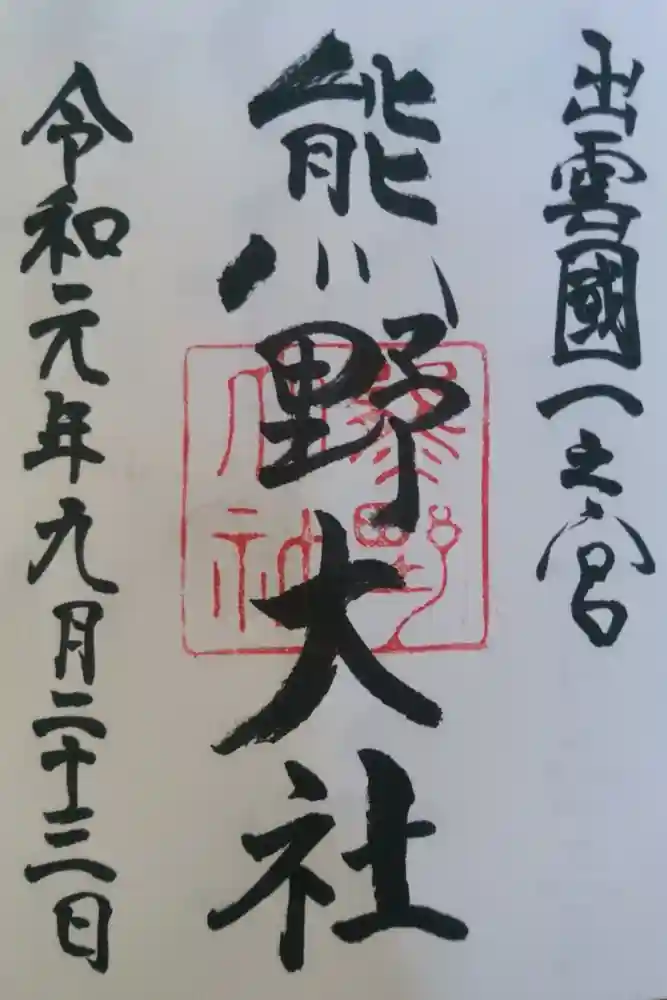 出雲國一之宮
熊野大社
令和元年九月二十三日